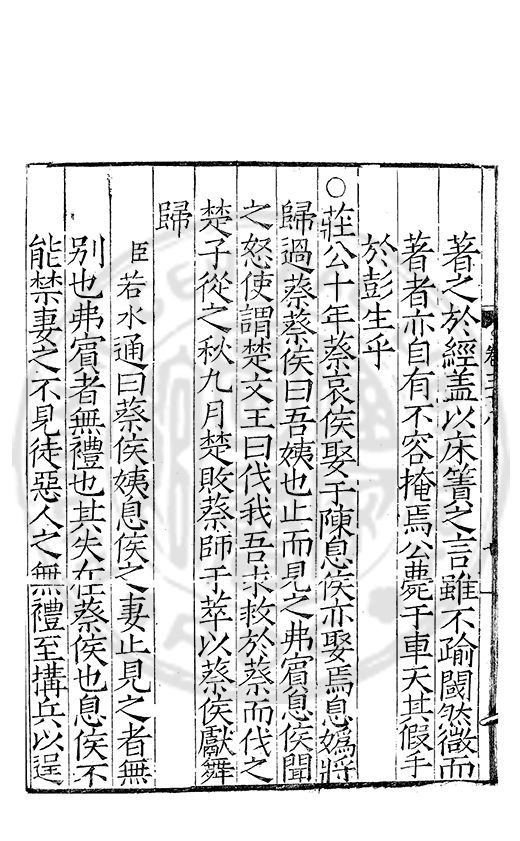 著之於經盖以床簀之言雖不踰閾然微而
著者亦自有不容掩焉公薨于車天其假手
於彭生乎
○莊公十年蔡哀侯娶于陳息侯亦娶焉息嬀將
歸過蔡蔡侯曰吾姨也止而見之弗賓息侯聞
之怒使謂楚文王曰伐我吾求救於蔡而伐之
楚子從之秋九月楚敗蔡師于莘以蔡侯獻舞
歸
臣若水通曰蔡侯姨息侯之妻止見之者無
別也弗賓者無禮也其失在蔡侯也息侯不
能禁妻之不見徒惡人之無禮至搆兵以逞